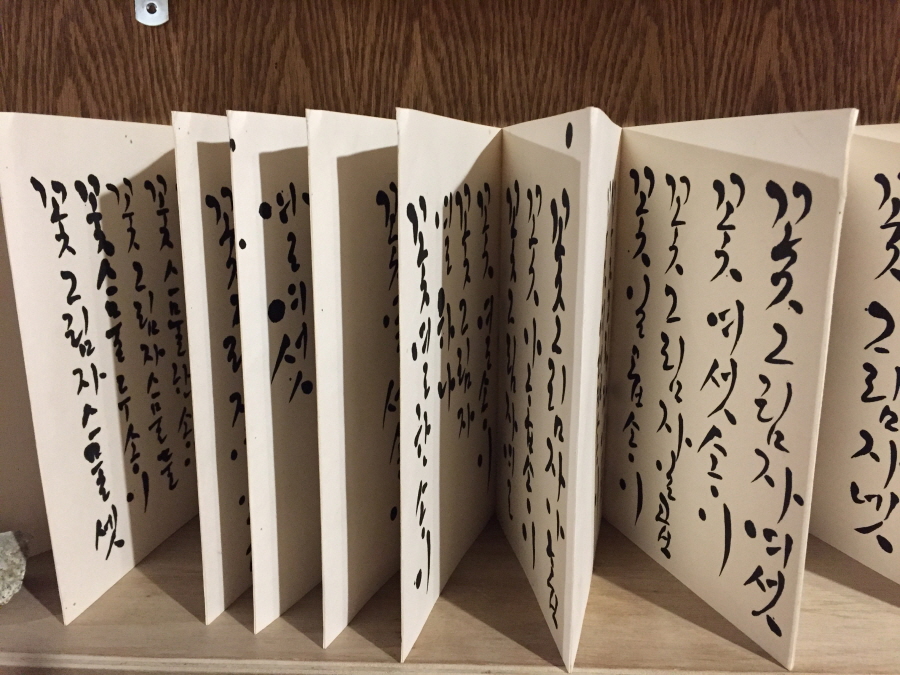 꽃 그림자 넷
꽃 그림자 여섯
꽃 여섯 송이
꽃 그림자 일곱
꽃 일곱 송이
꽃 그림자 아홉
꽃 아홉 송이
꽃 그림자 열
꽃 열 송이
꽃 그림자
열 하나
꽃 열한 송이
열여섯
꽃 스물한 송
꽃 그림자 스물둘
꽃 스물두 송이
꽃 그림자 스물셋